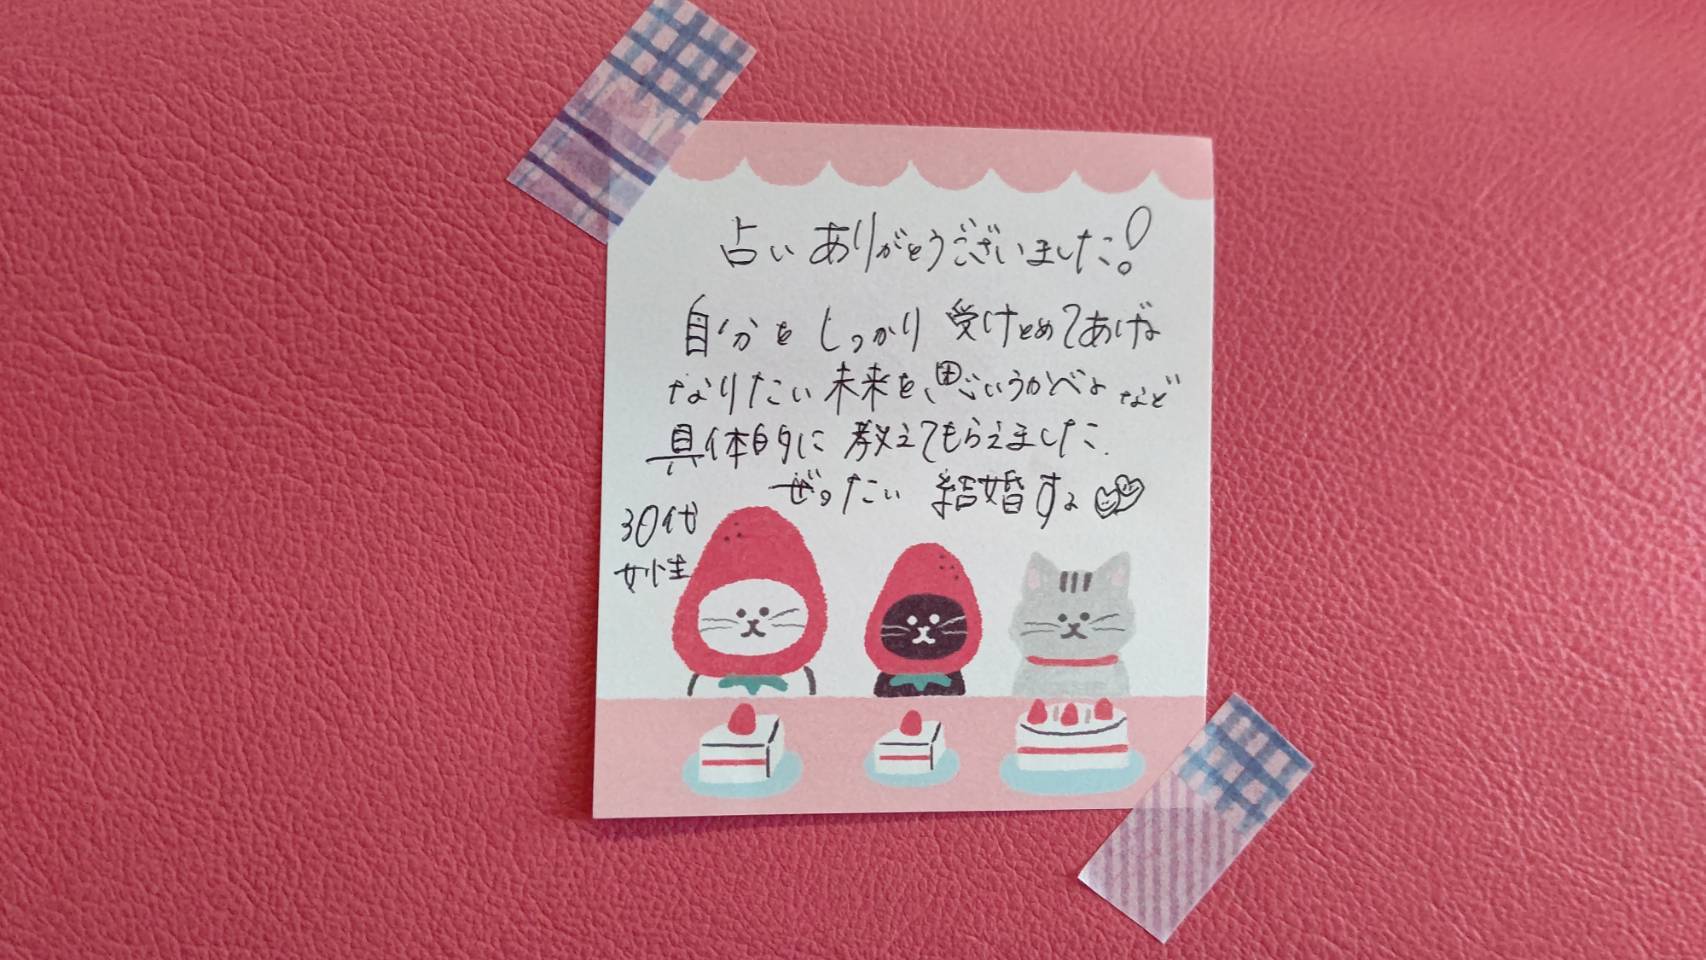 占いありがとうございました!
自分をしっかり受けとめてあげる
なりたい未来を、思いうかべるなど
具体的に教えてもらえました.
ぜったい結婚する
30代
女性